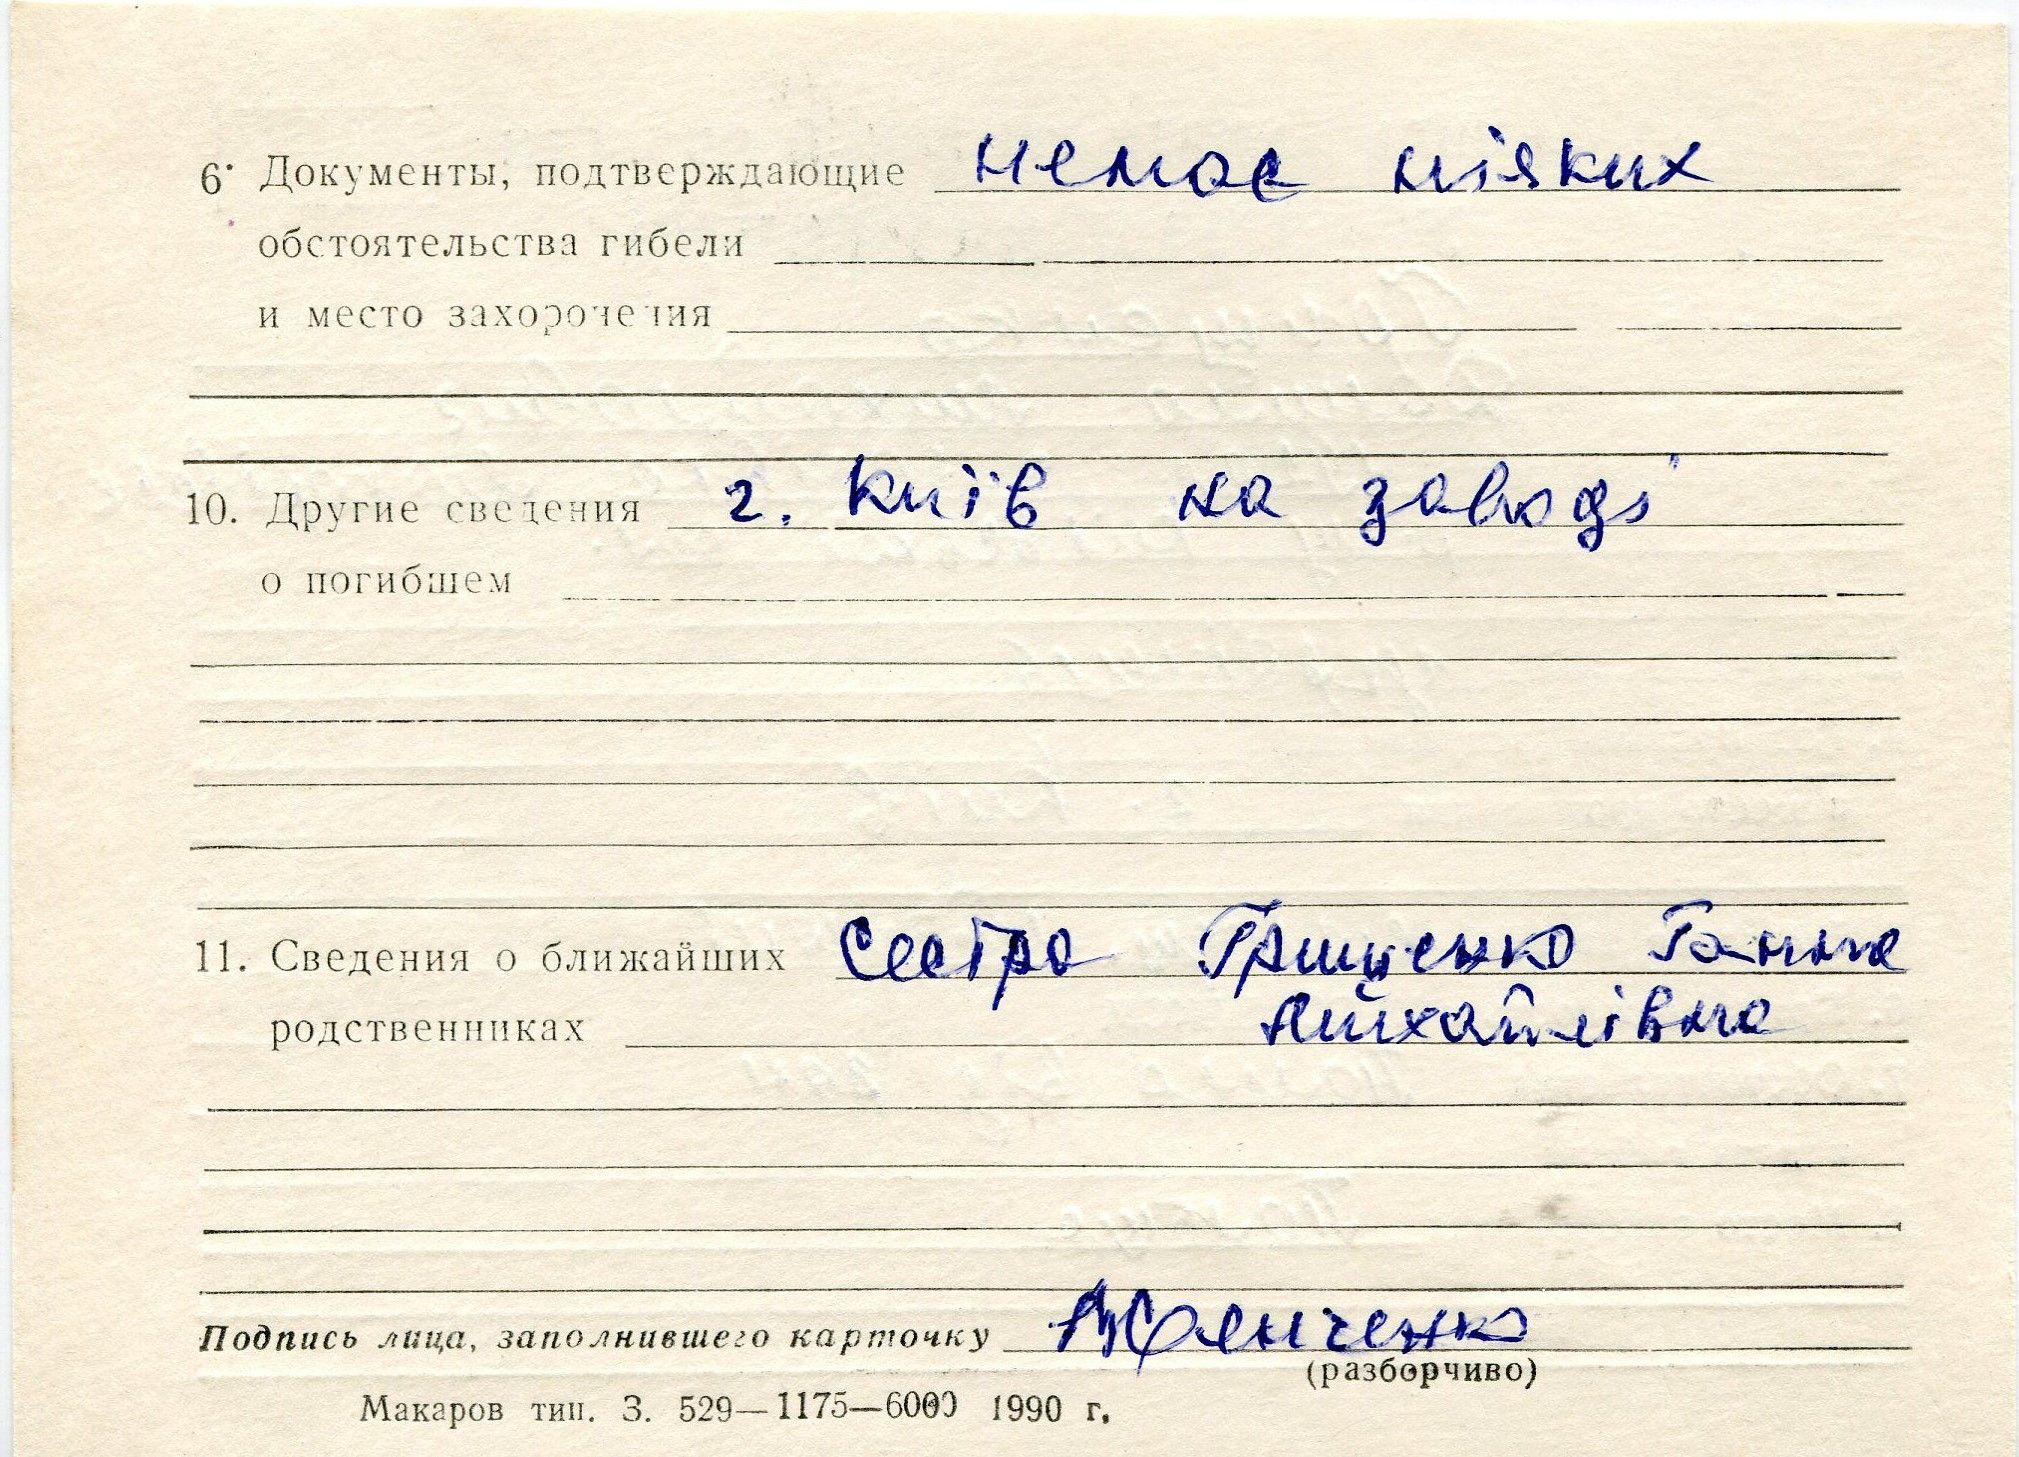 6. Документы, подтверждающие немає ніяких
обстоятельства гибели
и место захоронения
10. Другие сведения г. Київ на заводі
о погибшем
11. Сведения о ближайших Сестра Грищенко Ганна
родственниках Михайлівна
Подпись лица, заполнившего карточку
(разборчиво)
Макаров тип. З. 529—1175—6000 1990 г.